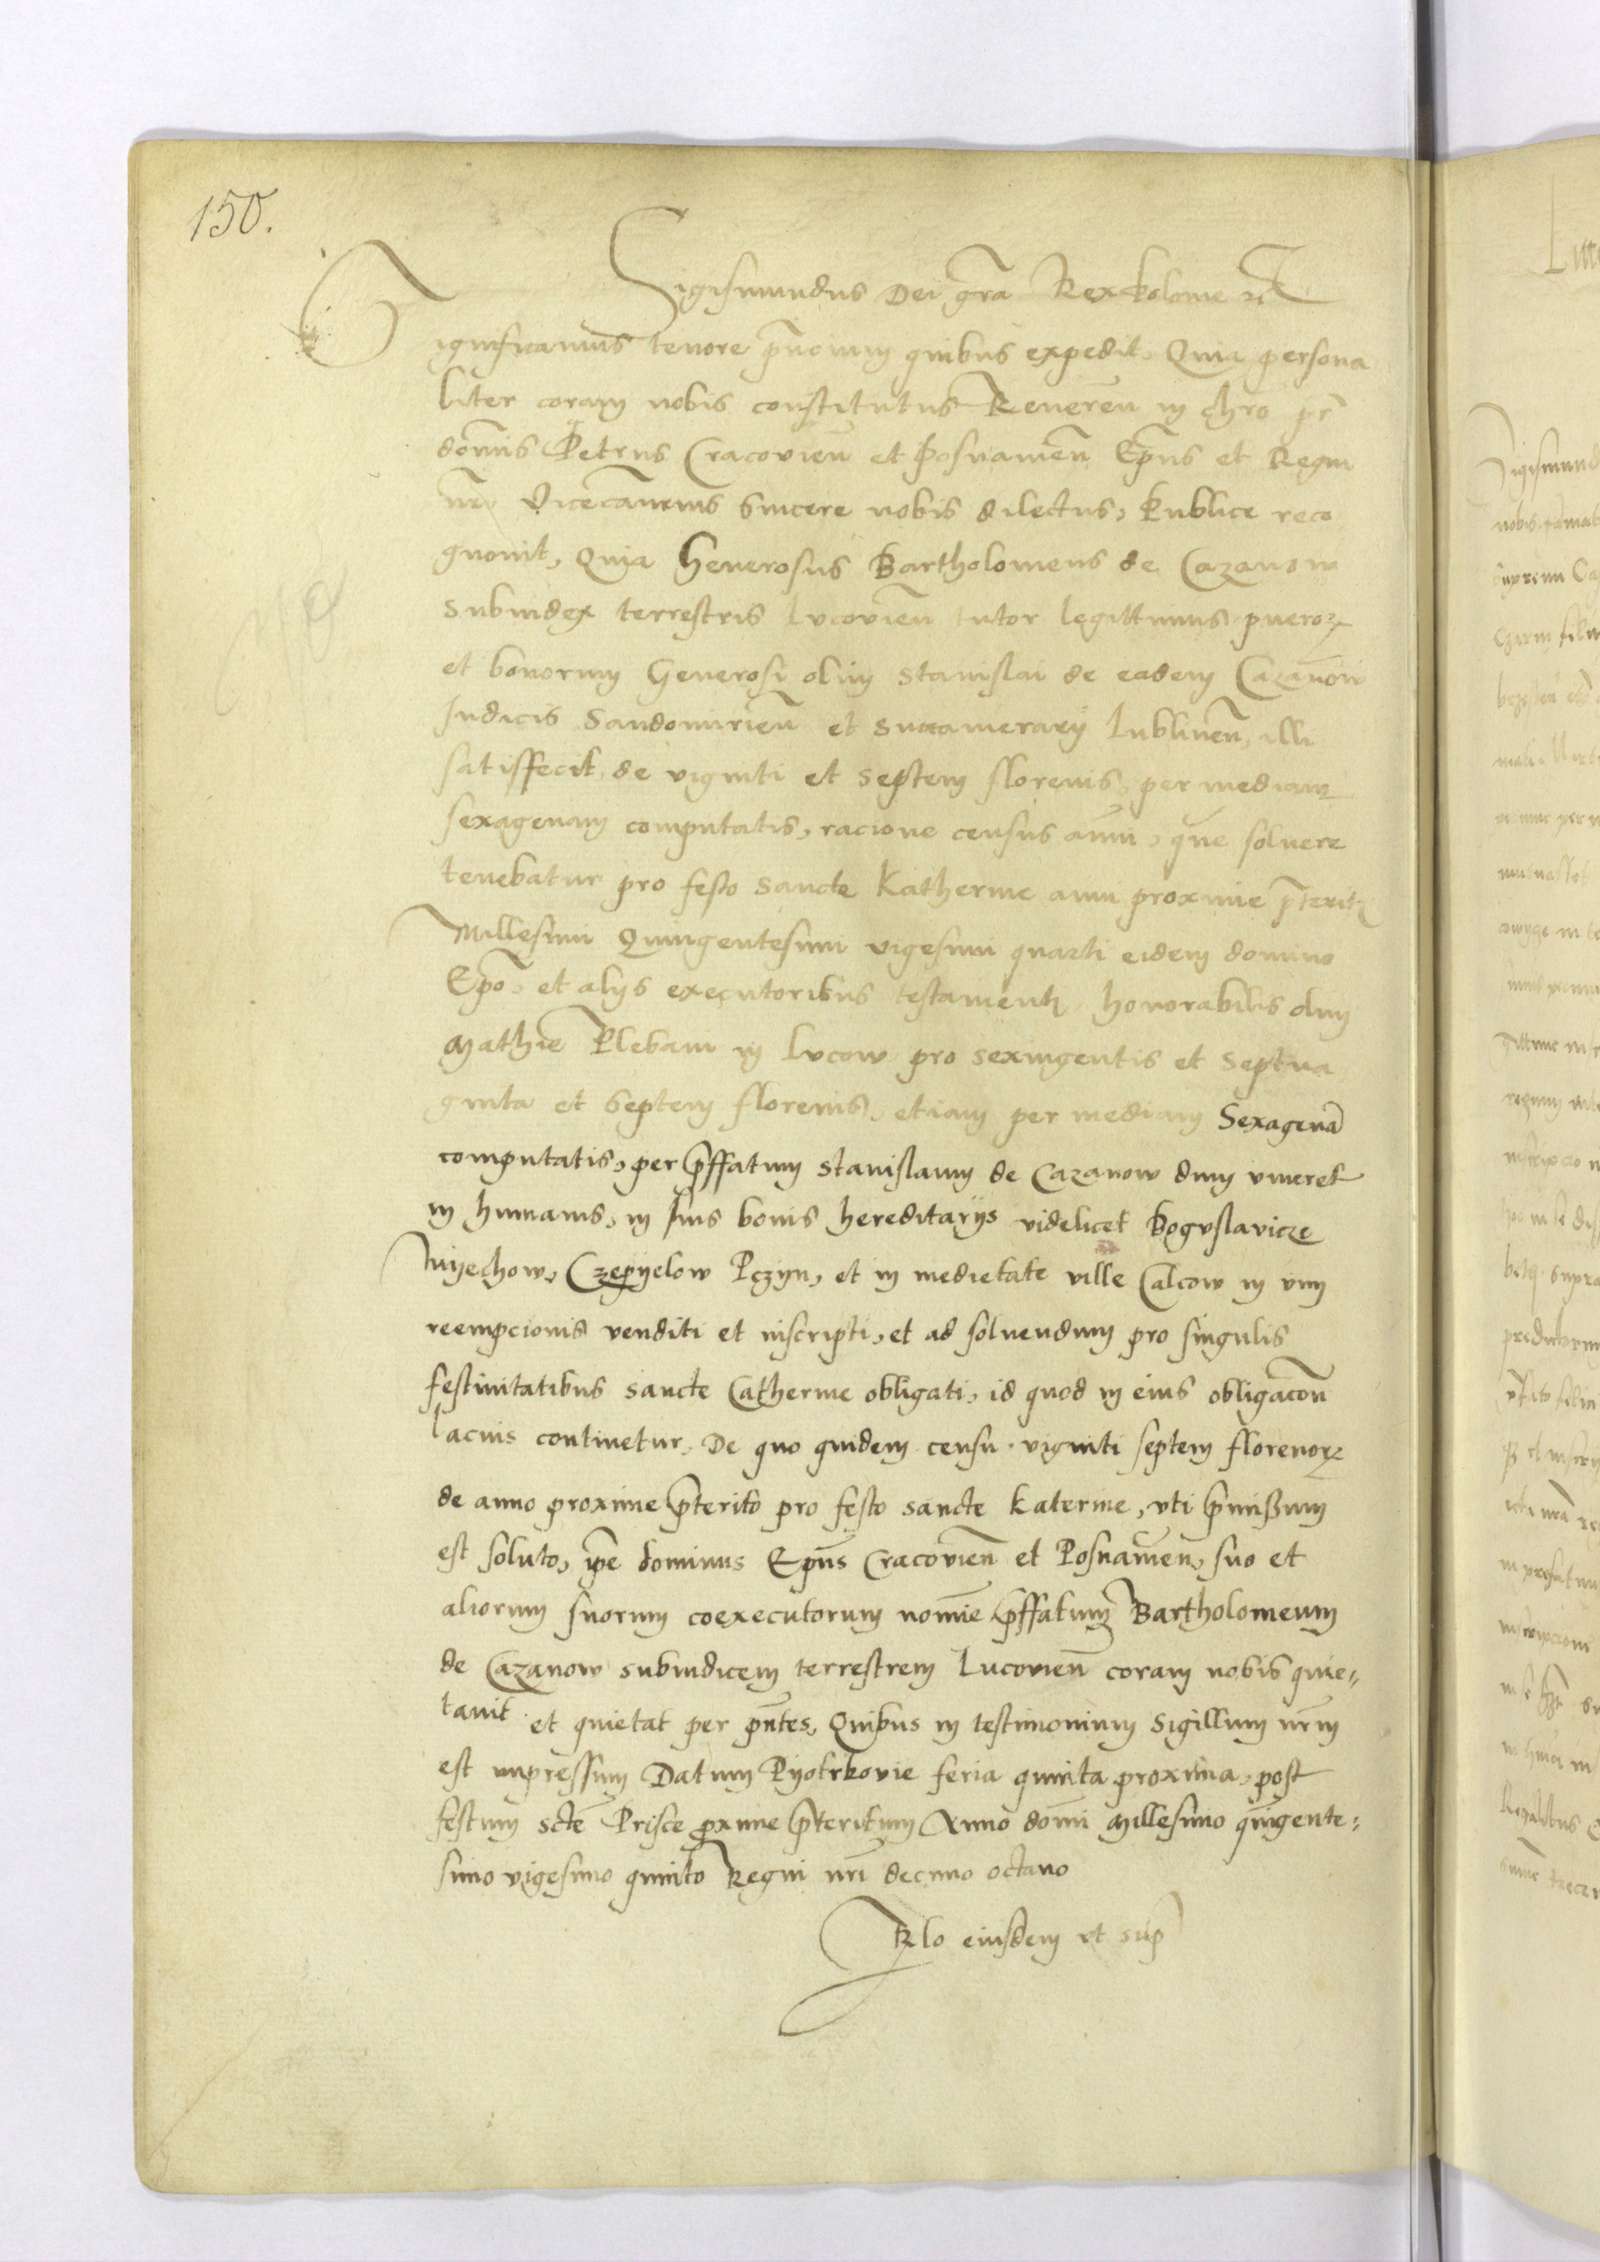 150.
Sigismundus Dei gra Rex Polonie etc
Significamus tenore pntium quibus expedit, Quia persona
liter coram nobis constitutus Reveren in chro pr
domis Petrus Cracovien et Posnanien Epus et Regni
nri Vicecancrius sincere nobis dilectus, Publice reco
gnovit, Quia Generosus Bartholomeus de Cazanow
Subiudex terrestris Lucovien tutor legittimus pueror
et bonorum Generosi olim Stanislai de eadem Cazanow
Iudicis Sandomirien et Succamerarij Lublinen, illi
satisffecit, de viginti et Septem florenis, per mediam
sexagenam computatis, racione census anni, que solvere
tenebatur pro festo Sancte Katherine anni proxime pteriti
Millesimi Quingentesimi vigesimi quarti eidem domino
Epo, et alijs executoribus testamenti honorabilis olim
Mathie Plebani in Lucow pro sexingentis et Septua
ginta et Septem florenis, etiam per mediam Sexagena
computatis, per pffatum Stanislaum de Cazanow dum viveret
in humanis, in suis bonis hereditarijs videlicet Boguslavicze
Wyechow, Czepyelow Pczyn, et in medietate ville Calcow in vim
reempcionis venditi et inscripti, et ad solvendum pro singulis
festivitatibus sancte Catherine obligati, id quod in eius obligacon
lacius continetur, De quo quidem censu viginti septem florenor
de anno proxime pterito pro festo sancte Katerine, uti pmissum
est soluto, ipe dominus Epus Cracovien et Posnanien, suo et
aliorum suorum coexecutorum nomie pffatum Bartholomeum
de Cazanow subiudicem terrestrem Lucovien coram nobis quie-
tavit et quietat per pntes, Quibus in testimonium Sigillum nrm
est impressum Datum Pyotrkovie feria quinta proxima, post
festum scte Prisce proxime pteritum Anno domi Millesimo quingente-
simo vigesimo quinto Regni nri decimo octavo
Rlo eiusdem ut sup